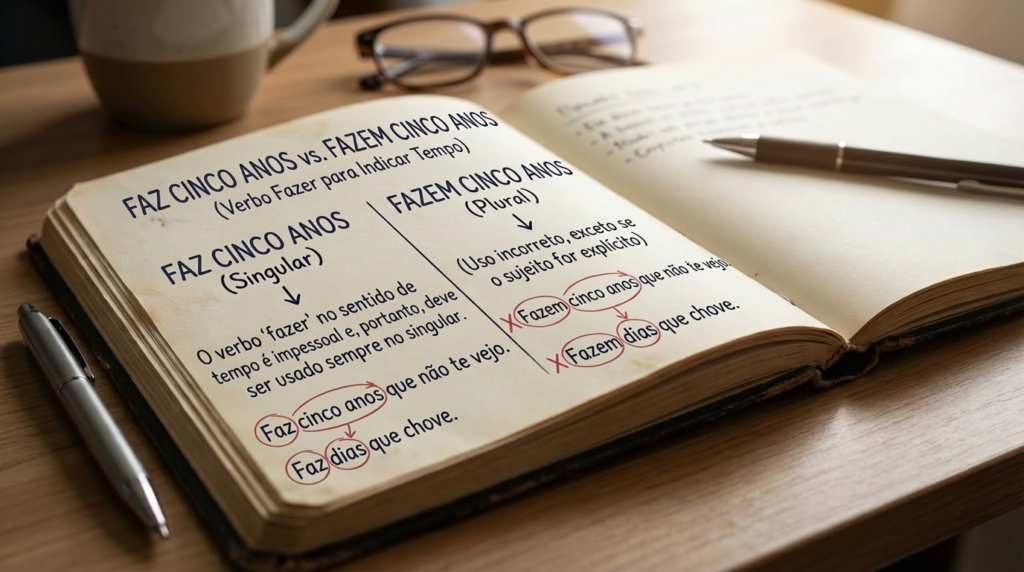 FAZ CINCO ANOS vs. FAZEM CINCO ANOS
(Verbo Fazer para Indicar Tempo)
FAZ CINCO ANOS
(Singular)
O verbo 'fazer' no sentido de
tempo é impessoal e, portanto, deve
ser usado sempre no singular.
Faz cinco anos que não te vejo.
Faz dias que chove.
FAZEM CINCO ANOS
(Plural)
(Uso incorreto, exceto se
o sujeito for explícito)
X Fazem cinco anos que não te vejo.
X Fazem dias que chove.